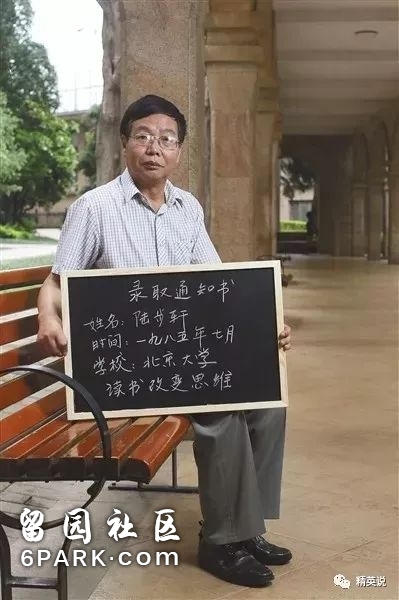 录取通知书
姓名：陆步轩
时间：一九八五年七月
学校：北京大学
读书改变思维
留园社区
6PARK.com
精英说